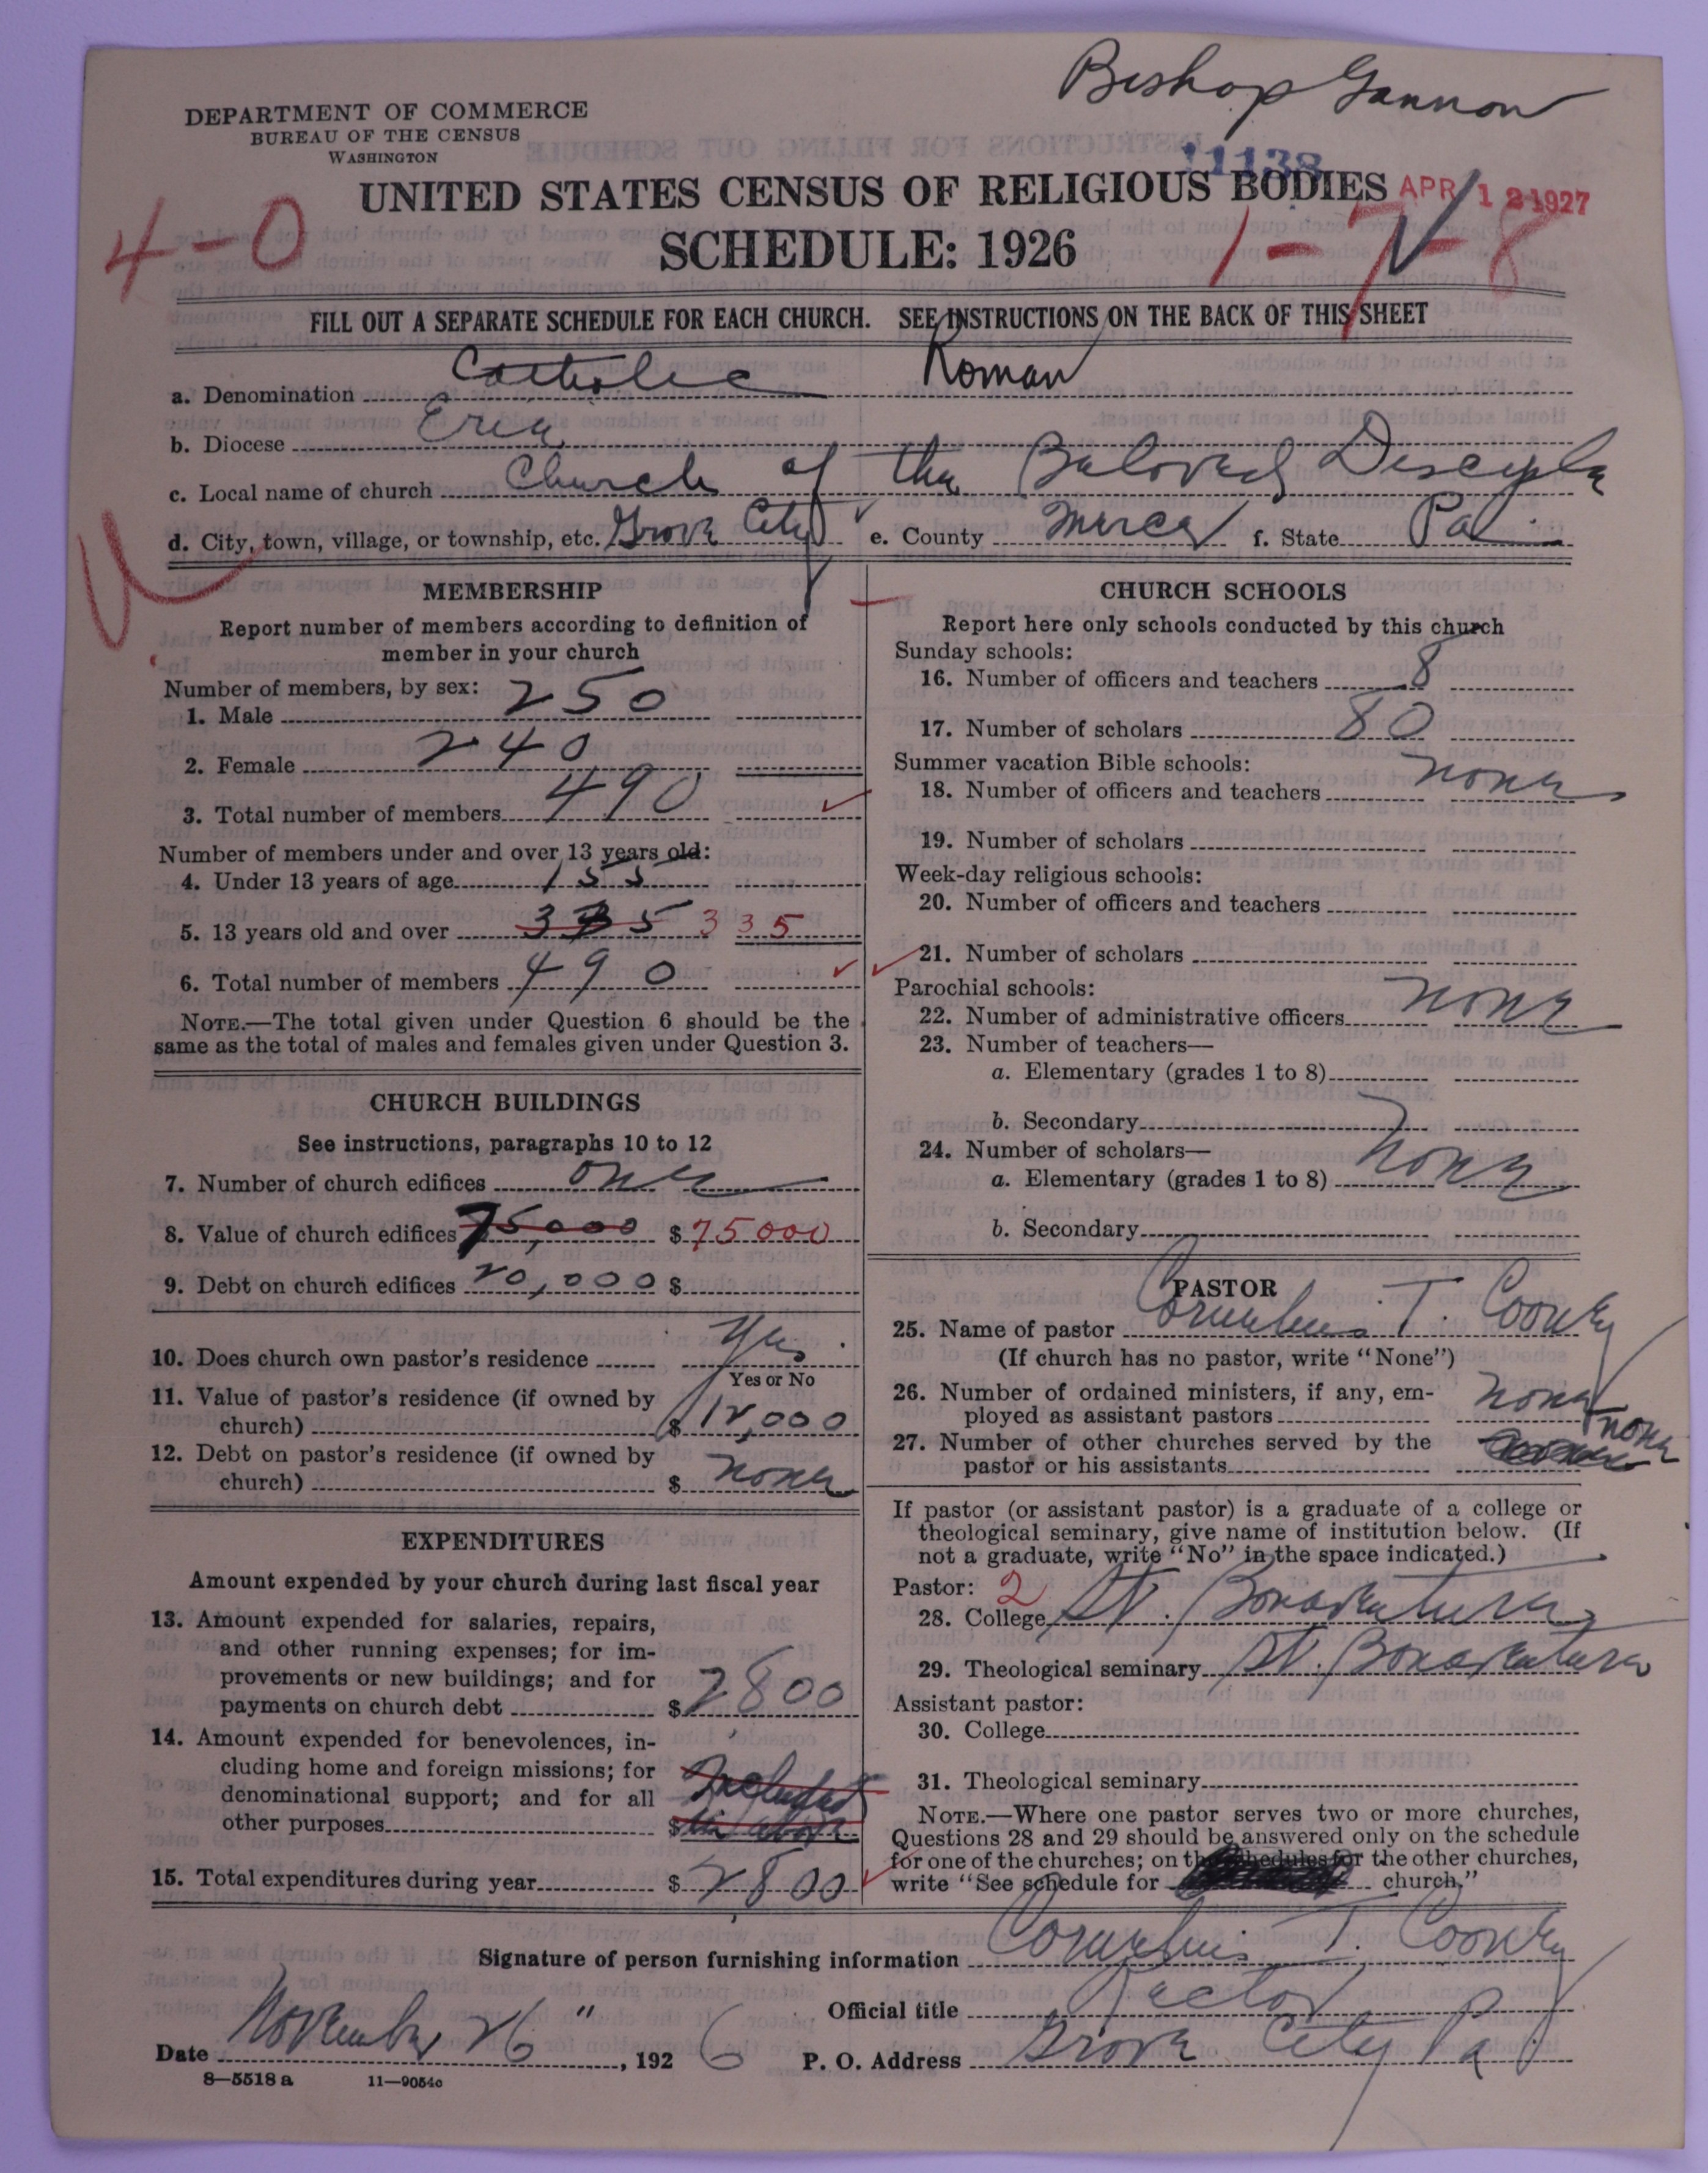 Bishop Gannon
DEPARTMENT OF COMMERCE
BUREAU OF THE CENSUS
WASHINGTON
11138
UNITED STATES CENSUS OF RELIGIOUS BODIES APR 12 1927
4-0
SCHEDULE: 1926
1-7-8
FILL OUT A SEPARATE SCHEDULE FOR EACH CHURCH. SEE INSTRUCTIONS ON THE BACK OF THIS SHEET
a. Denomination Catholic Roman
b. Diocese Erie
c. Local name of church Church of the Beloved Disciple
d. City, town, village, or township, etc. Grove City e. County Mercer f. State Pa.
MEMBERSHIP
Report number of members according to definition of
member in your church
Number of members, by sex:
1. Male 250
2. Female 240
3. Total number of members 490
Number of members under and over 13 years old:
4. Under 13 years of age 155
5. 13 years old and over 335 335
6. Total number of members 490
NOTE.—The total given under Question 6 should be the
same as the total of males and females given under Question 3.
CHURCH BUILDINGS
See instructions, paragraphs 10 to 12
7. Number of church edifices one
8. Value of church edifices 75,000 $ 75000
9. Debt on church edifices 20,000 $
10. Does church own pastor's residence Yes
Yes or No
11. Value of pastor's residence (if owned by
church) $ 12,000
12. Debt on pastor's residence (if owned by
church) $ none
EXPENDITURES
Amount expended by your church during last fiscal year
13. Amount expended for salaries, repairs,
and other running expenses; for im-
provements or new buildings; and for
payments on church debt $ 2800
14. Amount expended for benevolences, in-
cluding home and foreign missions; for
denominational support; and for all Included
other purposes $ in above
15. Total expenditures during year $ 2800
CHURCH SCHOOLS
Report here only schools conducted by this church
Sunday schools:
16. Number of officers and teachers 8
17. Number of scholars 80
Summer vacation Bible schools:
18. Number of officers and teachers none
19. Number of scholars
Week-day religious schools:
20. Number of officers and teachers
21. Number of scholars
Parochial schools:
22. Number of administrative officers none
23. Number of teachers—
a. Elementary (grades 1 to 8)
b. Secondary
24. Number of scholars—
a. Elementary (grades 1 to 8) none
b. Secondary
PASTOR
25. Name of pastor Cornelius T. Cooney
(If church has no pastor, write "None")
26. Number of ordained ministers, if any, em-
ployed as assistant pastors none
27. Number of other churches served by the
pastor or his assistants none
If pastor (or assistant pastor) is a graduate of a college or
theological seminary, give name of institution below. (If
not a graduate, write "No" in the space indicated.)
Pastor: 2
28. College St. Bonaventure
29. Theological seminary St. Bonaventure
Assistant pastor:
30. College
31. Theological seminary
NOTE.—Where one pastor serves two or more churches,
Questions 28 and 29 should be answered only on the schedule
for one of the churches; on the schedules for the other churches,
write "See schedule for church."
Signature of person furnishing information Cornelius T. Cooney
Official title Rector
Date November 26", 1926 P. O. Address Grove City Pa
8—5518 a 11—9054c